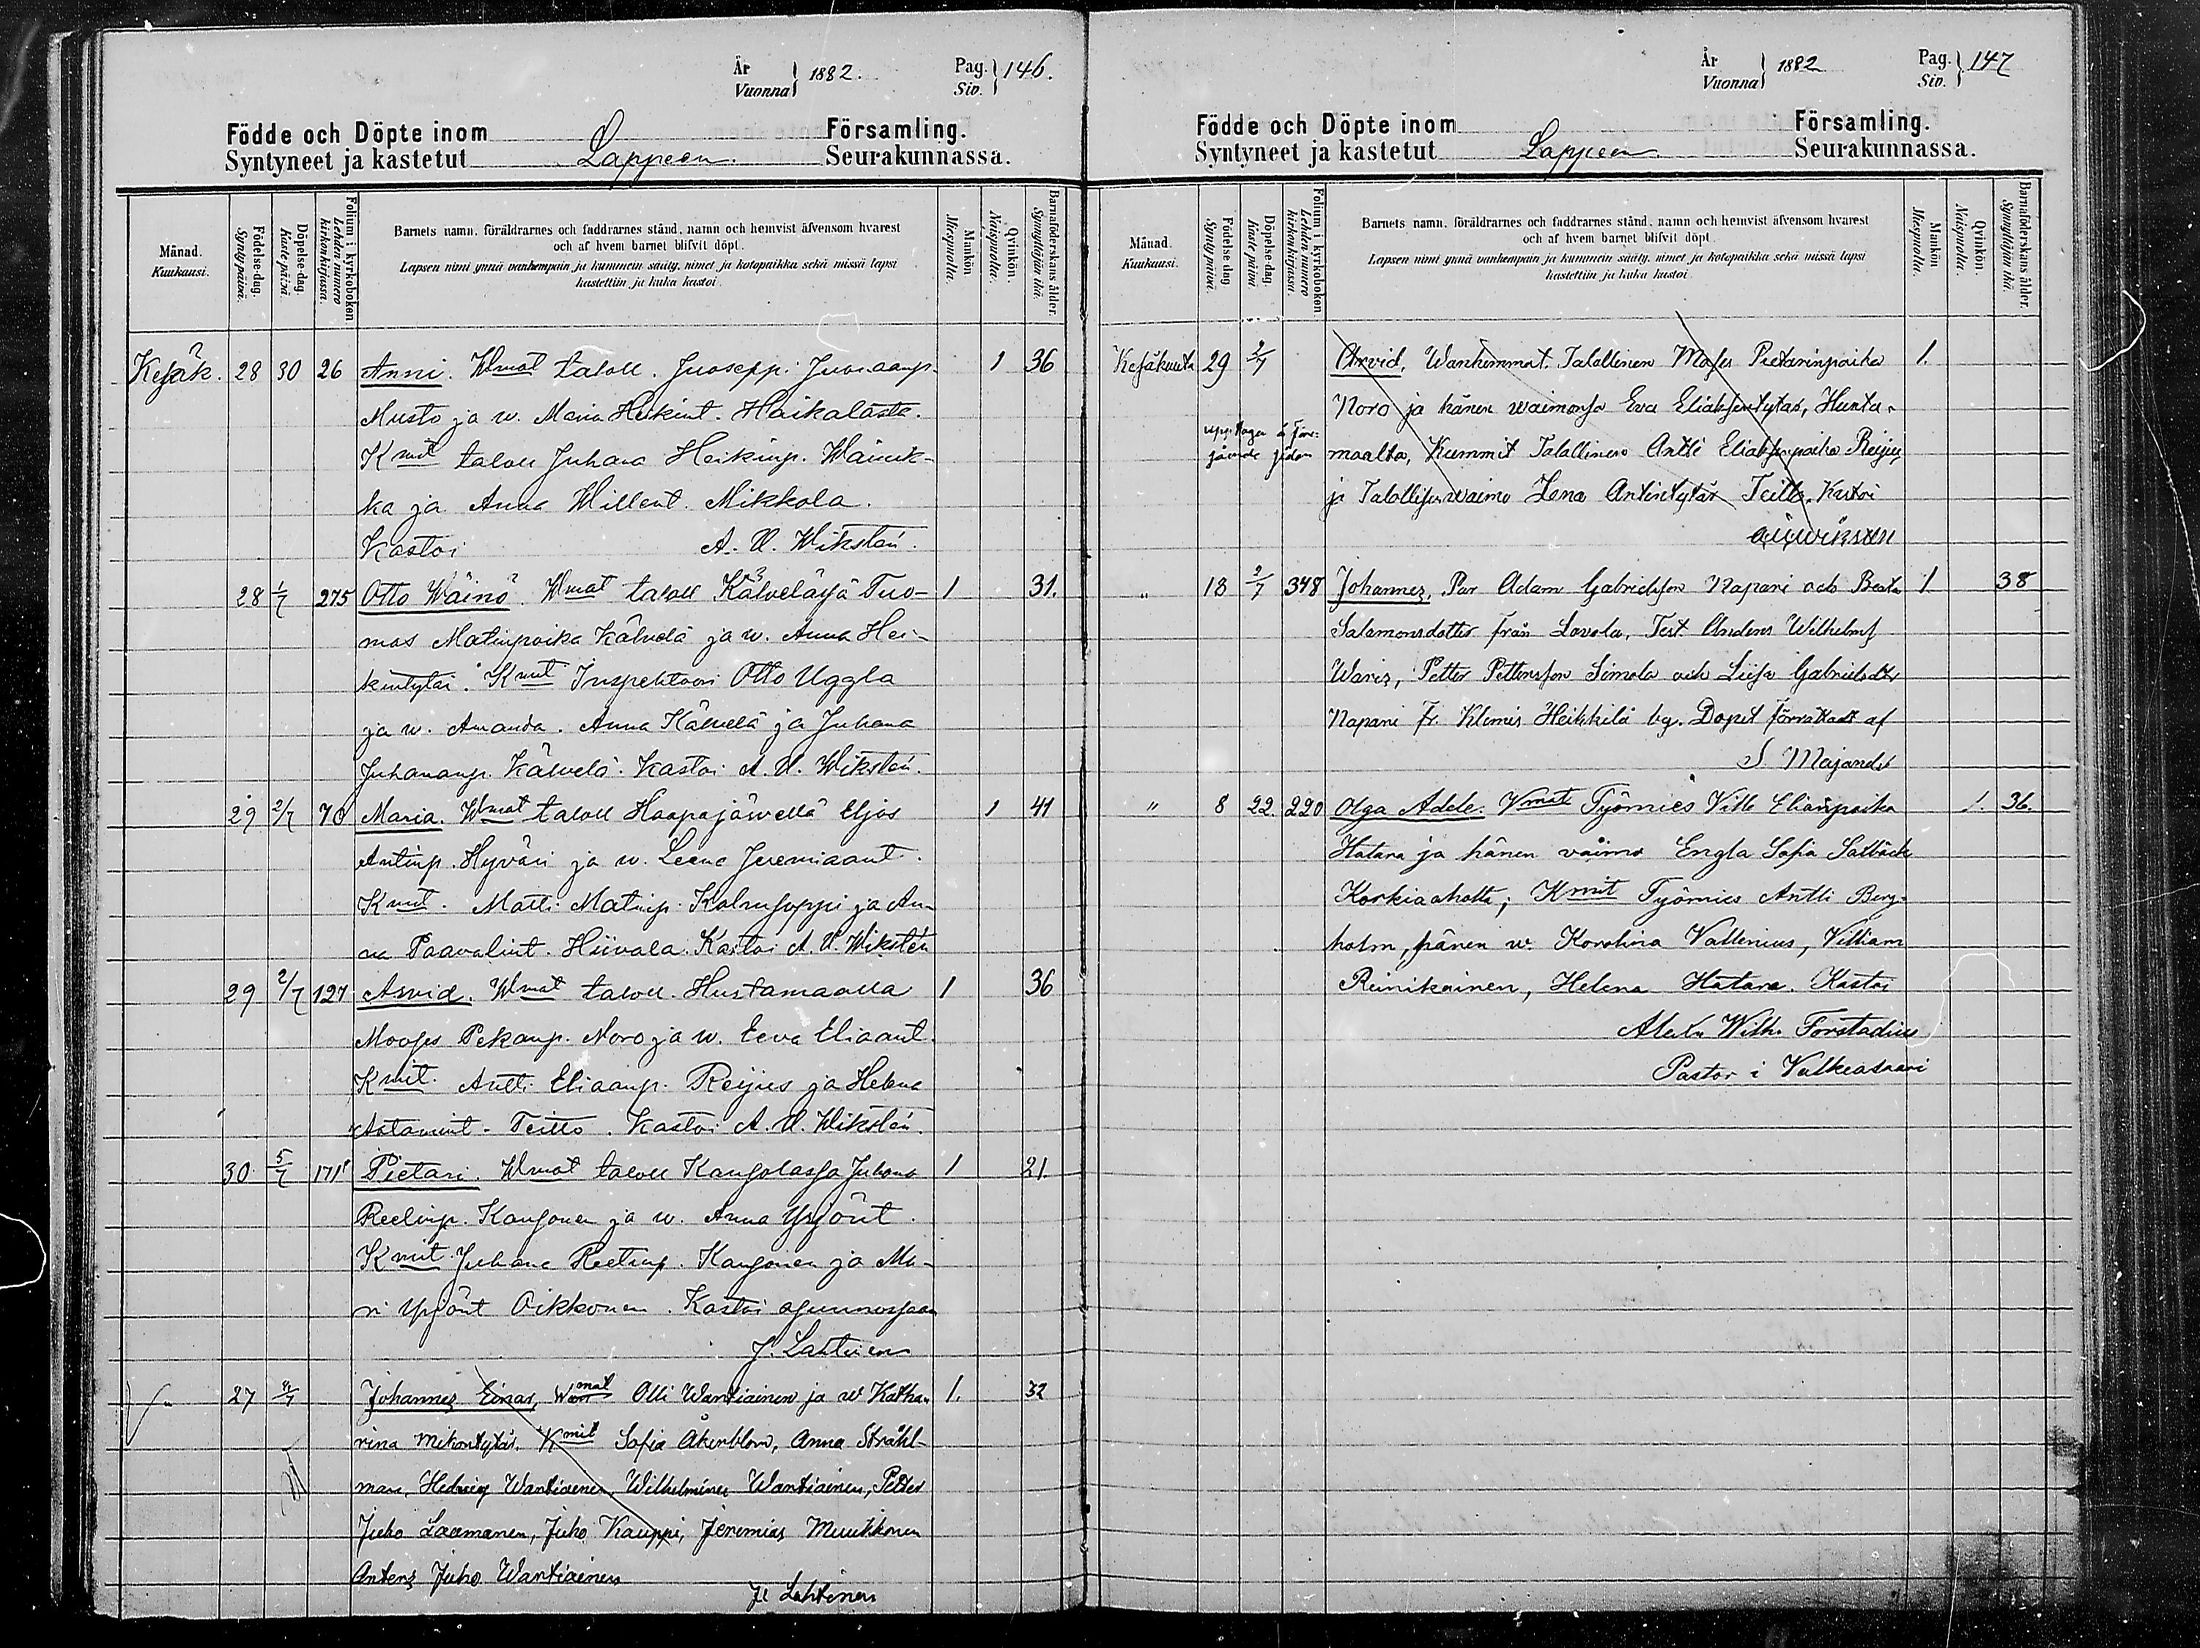 År
Vuonna } 1882. Pag.
Siv. } 146.
Födde och Döpte inom Församling.
Syntyneet ja kastetut Lappeen. Seurakunnassa.
Månad.
Kuukausi.
Födelse-dag.
Synty päivä.
Döpelse-dag.
Kaste päivä.
Folium i kyrkoboken
Lehden numero
kirkonkirjassa.
Barnets namn, föräldrarnes och faddrarnes stånd, namn och hemvist äfvensom hvarest
och af hvem barnet blifvit döpt.
Lapsen nimi ynnä vanhempain ja kummein sääty, nimet ja kotopaikka sekä missä lapsi
kastettiin ja kuka kastoi.
Mankön.
Miespuolta.
Qvinkön.
Naispuolta.
Barnaföderskans ålder.
Synnyttäjän ikä.
Kesäk. 28 30 26 Anni. Wmat taloll. Juoseppi Juhananp. 1 36
Musto ja w. Maria Heikint. Haikalasta.
Kmit taloll Juhana Heikinp. Wainik-
ka ja Anna Willent. Mikkola.
Kastoi A. W. Wikstén.
28 1/7 275 Otto Wäinö. Wmat taloll Kälvelässä Tuo- 1 31.
mas Matinpoika Kälvelä ja w. Anna Hei-
kintytär. Kmit Inspehtoori Otto Uggla
ja w. Amanda. Anna Kälvelä ja Juhana
Juhananp. Kälvelä. Kastoi A. W. Wikstén.
29 2/7 70 Maria. Wmat taloll Haapajärvellä Eljas 1 41
Antinp. Hyväri ja w. Leena Jeremiaant.
Kmit. Matti Matinp. ja An-
na Paavalint. Hiivala. Kastoi A. W. Wikstén
29 2/7 127 Arvid. Wmat taloll. Huntamaalla 1 36
Mooses Pekanp. Noro ja w. Eeva Eliaant.
Kmit. Antti Eliaanp. Reijus ja Helena
Aatamint. Teitto. Kastoi A. W. Wikstén.
30. 5/7 171 Pietari. Wmat taloll Kansolassa Juhana 1 21.
Reetinp. Kansonen ja w. Anna Yrjönt.
Kmit. Juhana Reetinp. Kansonen ja Ma-
ri Yrjönt Oikkonen. Kastoi
J. Lahtinen
27 Johannes Einar, Wanmat Olli Wantiainen ja w Katha- 1. 32
rina Mikontytär. Kmit Sofia Åkerblom, Anna Stråhl-
man, Hedvig Wantiainen, Wilhelmina Wantiainen, Petter
Juho Laamanen, Juho Kauppi, Jeremias Muukkonen
Anters Juho Wantiainen
J. Lahtinen
År
Vuonna } 1882 Pag.
Siv. } 147
Födde och Döpte inom Församling.
Syntyneet ja kastetut Lappeen. Seurakunnassa.
Månad.
Kuukausi.
Födelse dag
Synty päivä.
Döpelse dag
Kaste päivä
Folium i kyrkoboken
Lehden numero
kirkonkirjassa.
Barnets namn, föräldrarnes och faddrarnes stånd, namn och hemvist äfvensom hvarest
och af hvem barnet blifvit döpt.
Lapsen nimi ynnä vanhempain ja kummein sääty, nimet ja kotopaikka sekä missä lapsi
kastettiin ja kuka kastoi
Mankön
Miespuolta.
Qvinkön.
Naispuolta.
Barnaföderskans ålder.
Synnyttäjän ikä.
Kesäkuuta 29 2/7 Arvid, Wanhimmat. Talollinen Moses Pietarinpoika 1.
Noro ja hänen waimonsa Eva Eliaksentytar, Hunta-
upptagen å före-
gående sidan maalta, Kummit Talollinen Antti Eliaksenpoika Reijus
ja Talollisenwaimo Lena Antintytär Teitto. Kastoi
„ 18 2/7 348 Johannes, Par Adam Gabrielsson Napari och Beata 1 38
Salamonsdotter från Lavola, Test Anders Wilhelms
Waris, Petter Pettersson Simola och Liisa Gabrielsdtr
Napari fr. Klemis Heikkilä by. Dopet förrättadt af
S Majander
„ 8 22. 220 Olga Adele. Vmat Työmies Ville Elianpoika 1. 36.
Hatara ja hänen vaimo Engla Sofia Salbäck
Korkiaaholta; Kmit Työmies Antti Berg-
holm, hänen w. Karolina Vallenius, Villiam
Reinikainen, Helena Hatara. Kastoi
Wilh. Forstadius
Pastor i Valkeasaari